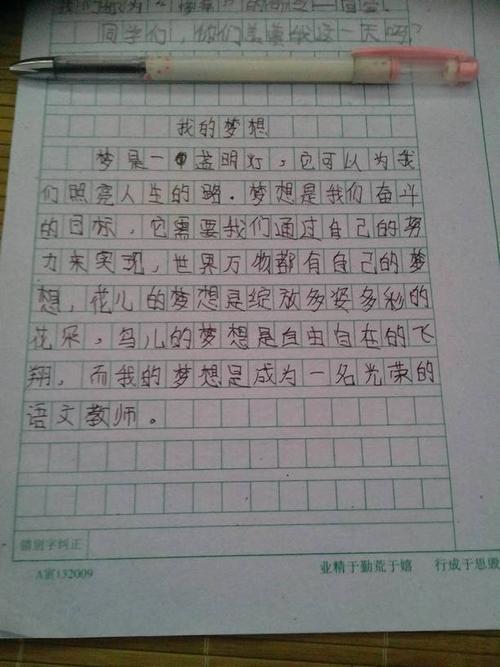 同学们，你们羡慕我这一天吗？
我的梦想
梦是一盏明灯，它可以为我
们照亮人生的路．梦想是我们奋斗
的目标，它需要我们通过自己的努
力来实现，世界万物都有自己的梦
想，花儿的梦想是绽放多姿多彩的
花朵，鸟儿的梦想是自由自在的飞
翔，而我的梦想是成为一名光荣的
语文教师。
错别字纠正
A宣132009
业精于勤荒于嬉 行成于思毁